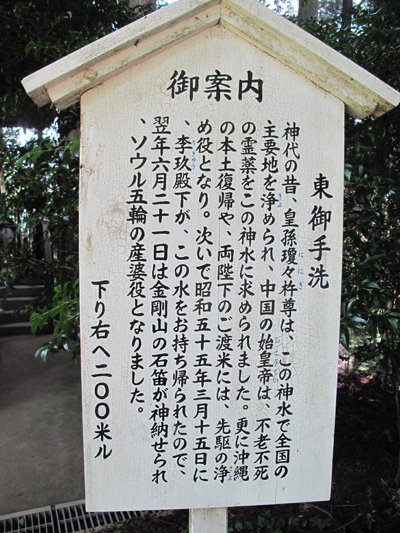 御案内
東御手洗
神代の昔、皇孫瓊々杵尊は、この神水で全国の
主要地を浄められ、中国の始皇帝は、不老不死
の霊薬をこの神水に求められました。更に沖縄
の本土復帰や、両陛下のご渡米には、先駆の浄
め役となり。次いで昭和五十五年三月十五日に
、李玖殿下が、この水をお持ち帰られたので、
翌年六月二十一日は金剛山の石笛が神納せられ
、ソウル五輪の産婆役となりました。
下り右へ二〇〇米ル